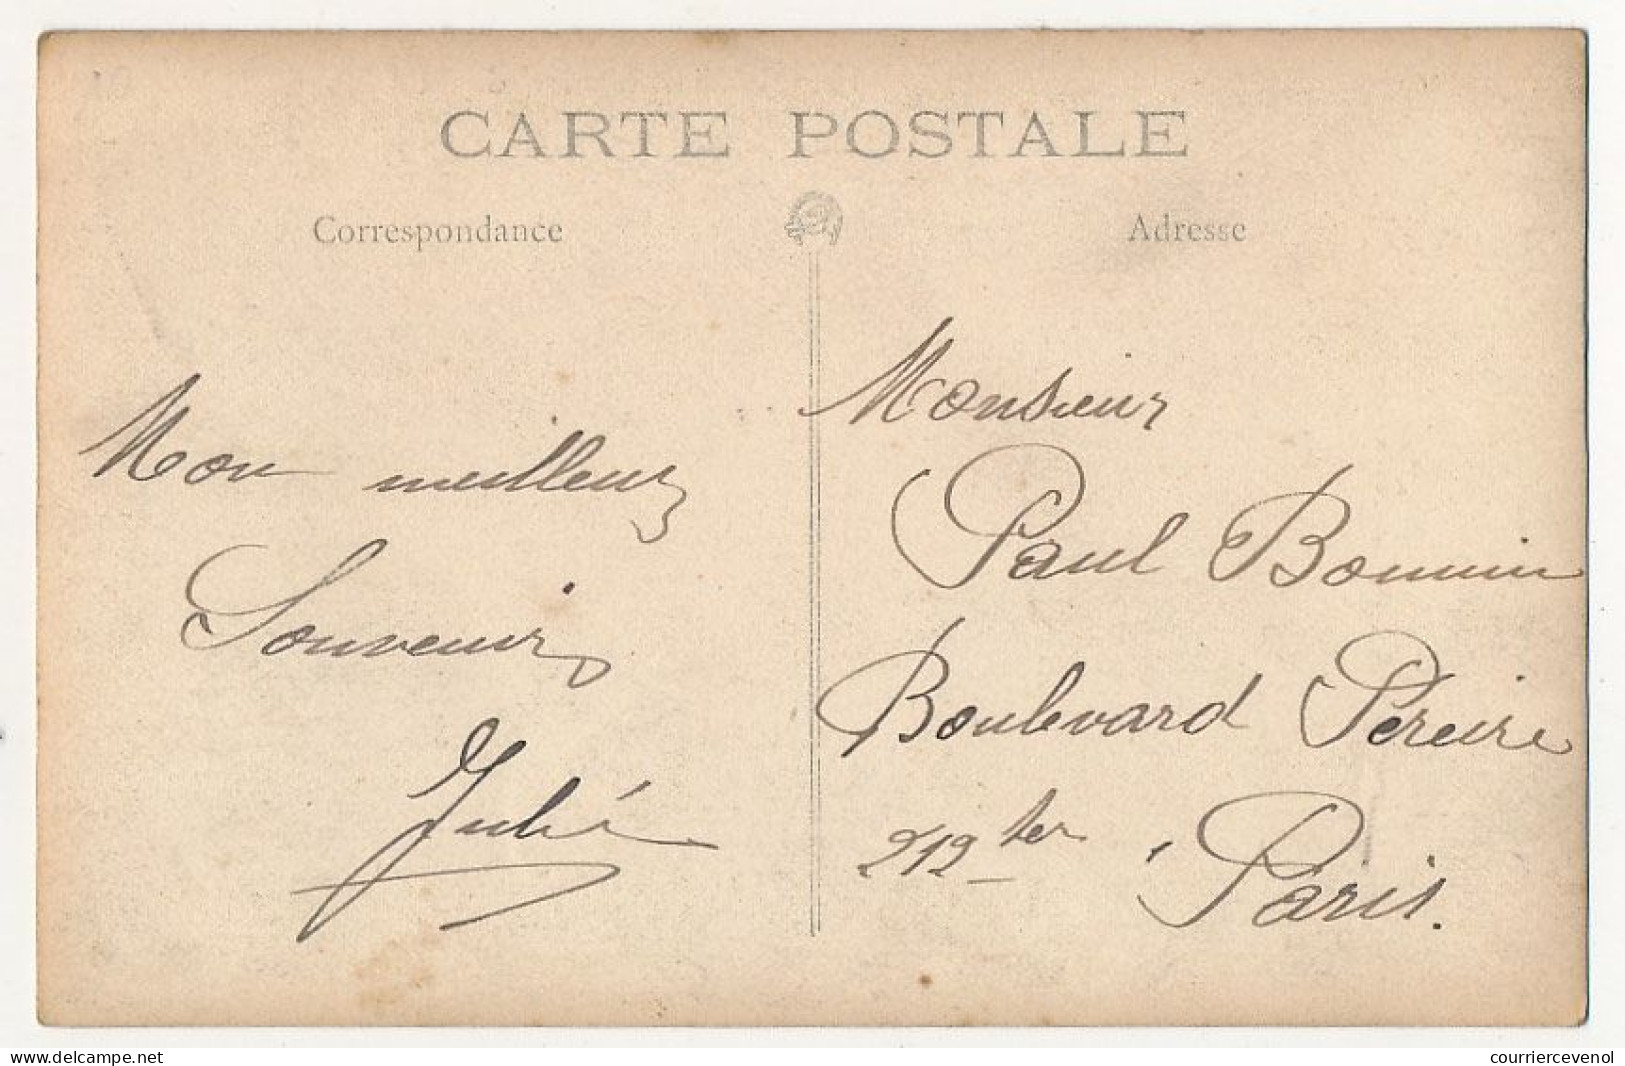 CARTE POSTALE
Correspondance
Adresse
Mon meilleur
Souvenir
Monsieur
Paul Bonnin
Boulevard Pereire
212 ter
Paris.
delcampe.net
courriercevenol